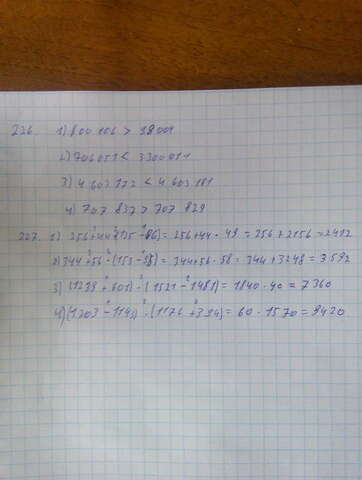 226. 1) 800 106 > 98 009
2) 706 051 < 3300 011
3) 4 603 122 < 4 603 181
4) 707 837 > 707 829
227. 1) 256+44·(135-86)= 256+44·49 = 256+2156=2412
2) 344+56·(153-95)= 344+56·58= 344+3248=3592
3) (1239+601)·(1521-1481)= 1840·40= 7360
4) (1203-1143)·(1176+394)= 60·1570=9420